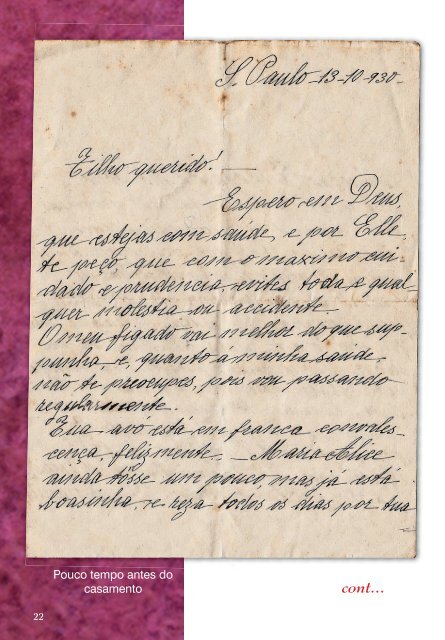 S. Paulo - 13-10-930-
Filho querido! —
Espero em Deus,
que estejas com saúde, e por Elle,
te peço, que com o maximo cui-
dado e prudencia, evites toda e qual-
quer molestia ou accidente.
O meu figado vai melhor do que sup-
punha, e, quanto á minha saúde,
não te preocupes, pois vou passando
regularmente.
Tua avo está em franca convales-
cença, felizmente. — Maria Alice
ainda tósse um pouco, mas já está
boasinha, e reza todos os dias por tua
Pouco tempo antes do
casamento
cont...
22